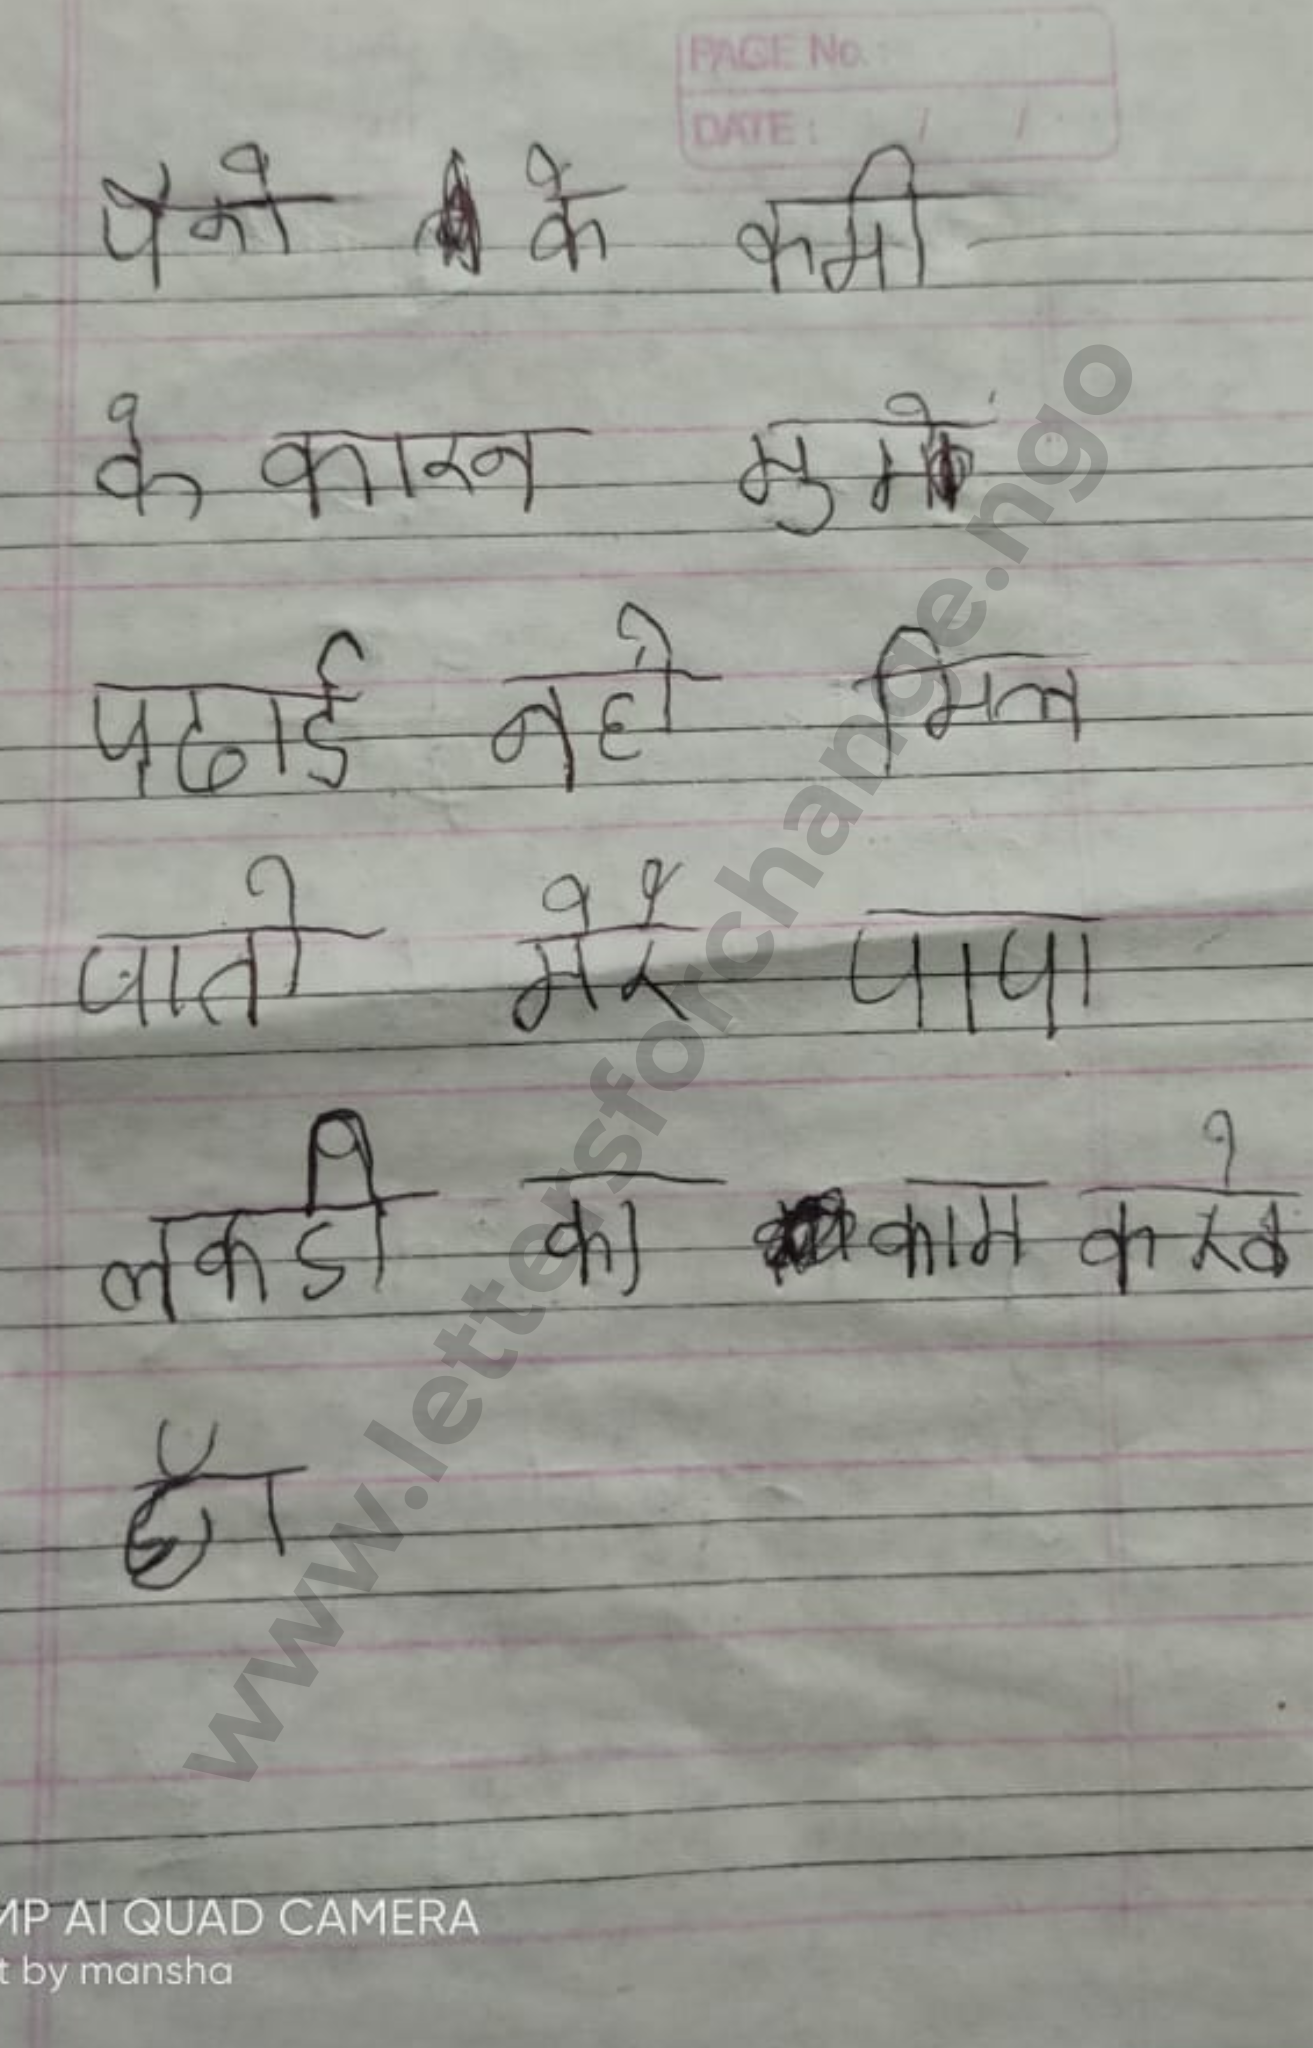 PAGE No.:
DATE: / /
के कमी
के कारन मुमे
पढाई नही मिल
पाती मेरे पापा
लकडी का काम करते
है।
www.lettersforchange.ngo
MP AI QUAD CAMERA
t by mansha